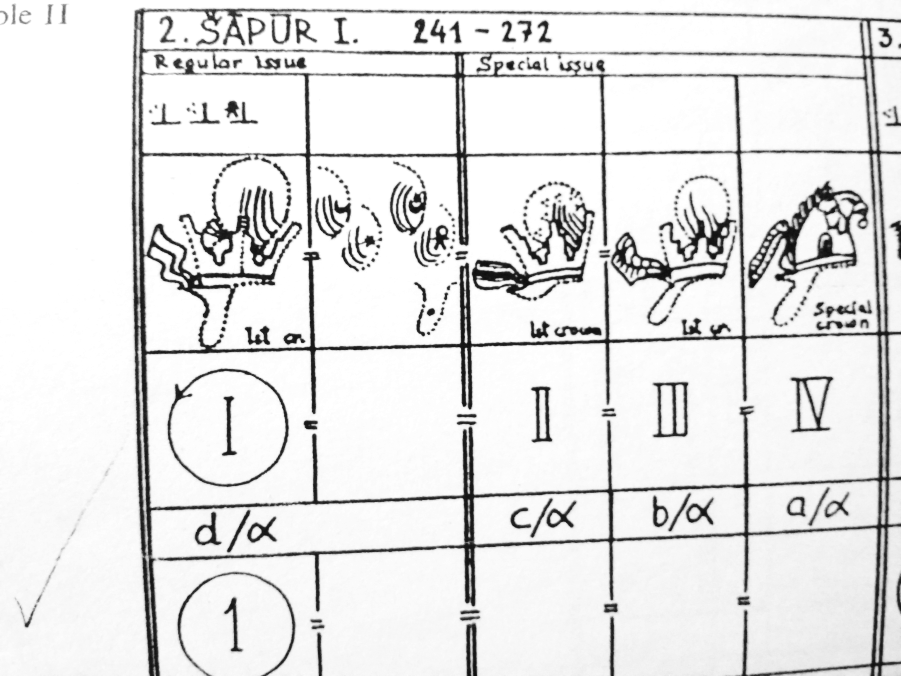 ble II
2. ŠĀPŪR I. 241 - 272
3.
Regular issue
Special issue
1st crown
Special crown
I
=
=
II
=
III
=
IV
d/α
c/α
b/α
a/α
1
=
=
=
=